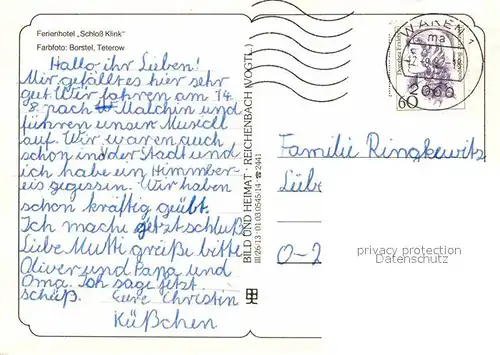 Ferienhotel „Schloß Klink“
Farbfoto: Borstel, Teterow
Hallo ihr Lieben!
Mir gefällt es hier sehr
gut. Wir fahren am 14.
8. nach Malchin und
führen unser Musical
auf. Wir waren auch
schon in der Stadt und
ich habe ein Himmber-
eis gegessen. Wir haben
schon kräftig geübt.
Ich mache jetzt schluß
Liebe Mutti grüße bitte
Oliver und Papa und
Oma. Ich sage jetzt
schüß. Eure Christin
Küßchen
BILD UND HEIMAT · REICHENBACH (VOGTL.)
III/26-13 · 01 03 0545/14 · ☎ 2441
WAREN 1
ma
2060
60
Familie Ringkewitz
Lübe
O-2
privacy protection
Datenschutz